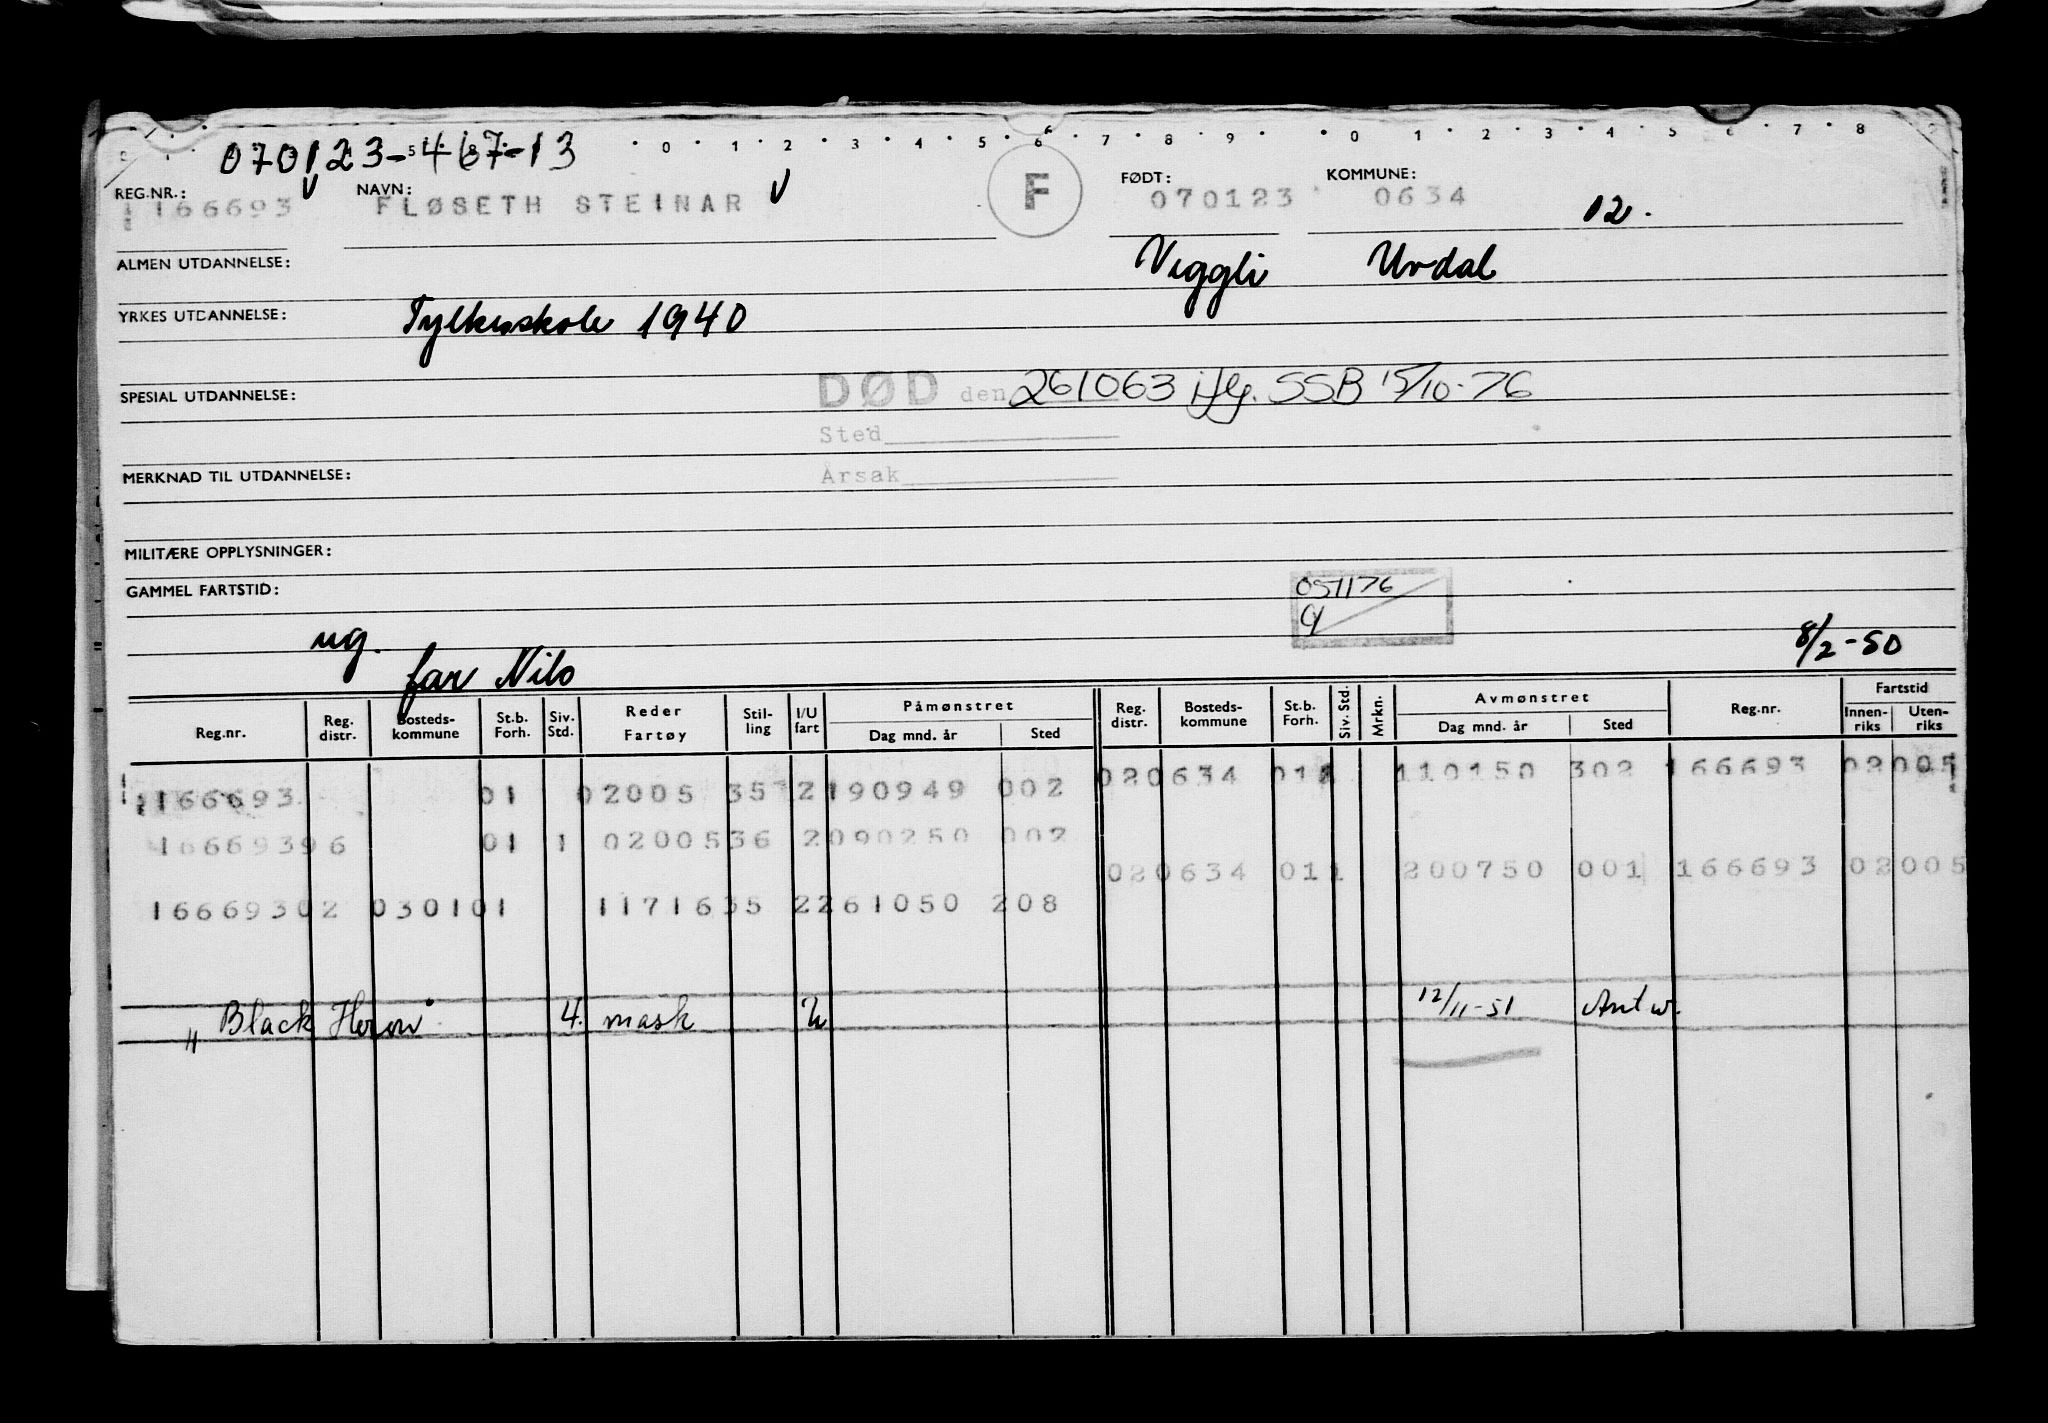 070123-46713
0 1 2 3 4 5 6 7 8 9 0 1 2 3 4 5 6 7 8
REG.NR.: NAVN: FØDT: KOMMUNE:
166693 FLØSETH STEINAR F 070123 0634 12.
ALMEN UTDANNELSE: Veggli Uvdal
YRKES UTDANNELSE: Fylkesskole 1940
SPESIAL UTDANNELSE: DØD den 261063 iflg. SSB 15/10-76
Sted
MERKNAD TIL UTDANNELSE: Årsak
MILITÆRE OPPLYSNINGER:
GAMMEL FARTSTID: 051176
ug. 8/2-50
far Nils
Reg.nr. Reg. distr. Bosteds-kommune St.b. Forh. Siv. Std. Reder Fartøy Stil-ling I/U fart Påmønstret Dag mnd. år Sted Reg. distr. Bosteds-kommune St.b. Forh. Siv. Std. Mrkn. Avmønstret Dag mnd. år Sted Reg.nr. Fartstid Innen-riks Uten-riks
166693 01 02005 35 2 190949 002 020634 011 110150 302 166693 02005
166693 96 01 1 02005 36 2 090250 002
020634 011 200750 001 166693 02005
166693 02 0301 01 11716 35 2 261050 208
" Black Heron 4. mask U 12/11-51 Antw.